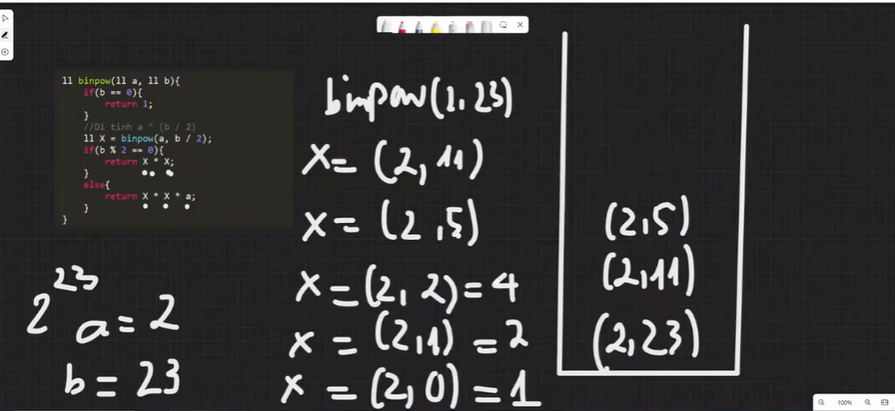 ll binpow(ll a, ll b){
if(b == 0){
return 1;
}
//Di tinh a ^ (b / 2)
ll X = binpow(a, b / 2);
if(b % 2 == 0){
return X * X;
}
else{
return X * X * a;
}
}
2^23
a = 2
b = 23
binpow(2, 23)
X = (2, 11)
X = (2, 5)
X = (2, 2) = 4
X = (2, 1) = 2
X = (2, 0) = 1
(2,5)
(2,11)
(2,23)
100%